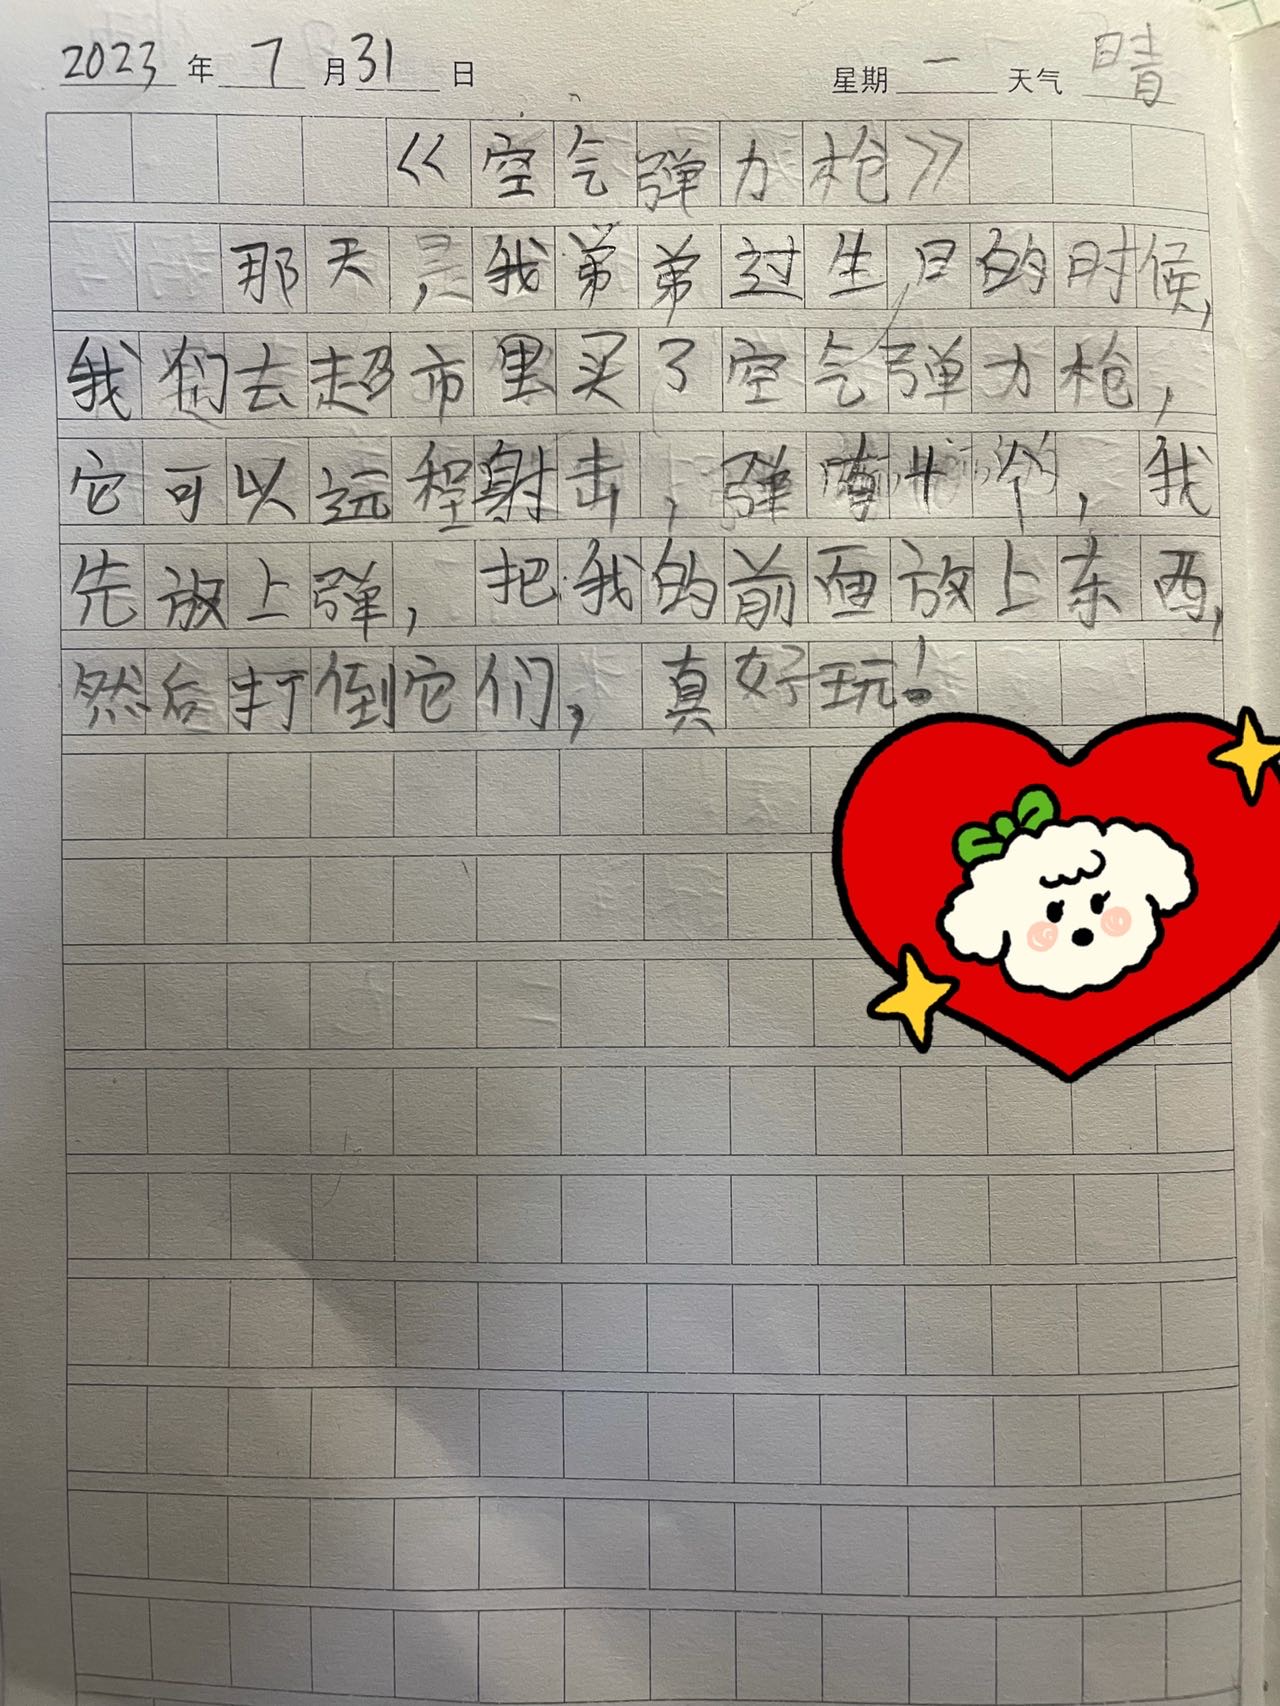 2023年7月31日 星期一 天气晴
《空气弹力枪》
那天,是我弟弟过生日的时候,
我们去超市里买了空气弹力枪,
它可以远程射击,弹有个,我
先放上弹,把我的前面放上东西,
然后打倒它们,真好玩!